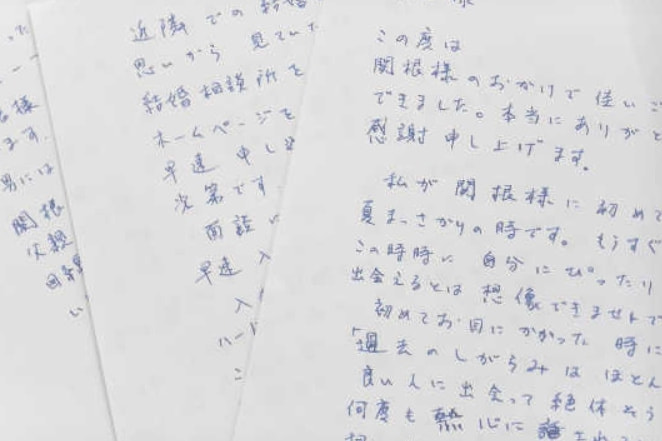 この度は
関根様のおかげで佳いご
できました。本当にありがと
感謝申し上げます。
私が関根様に初めて
夏まっさかりの時です。もうすぐ
この時時に自分にぴったり
出会えるとは想像できませんで
初めてお目にかかった時に
「過去のしがらみはほとん
良い人に出会って絶体そう
何度も熱心に
近隣での結婚
思いから見てい
結婚相談所を
ホームページを
早速申し込
次第です
面談に
早速入
入
ハード
こ
様
ます。
男には
関根
い